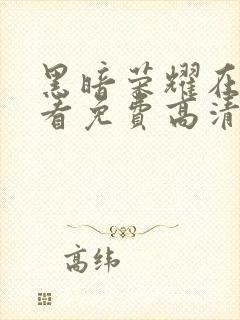 黑暗荣耀在
看免费高清
高纬